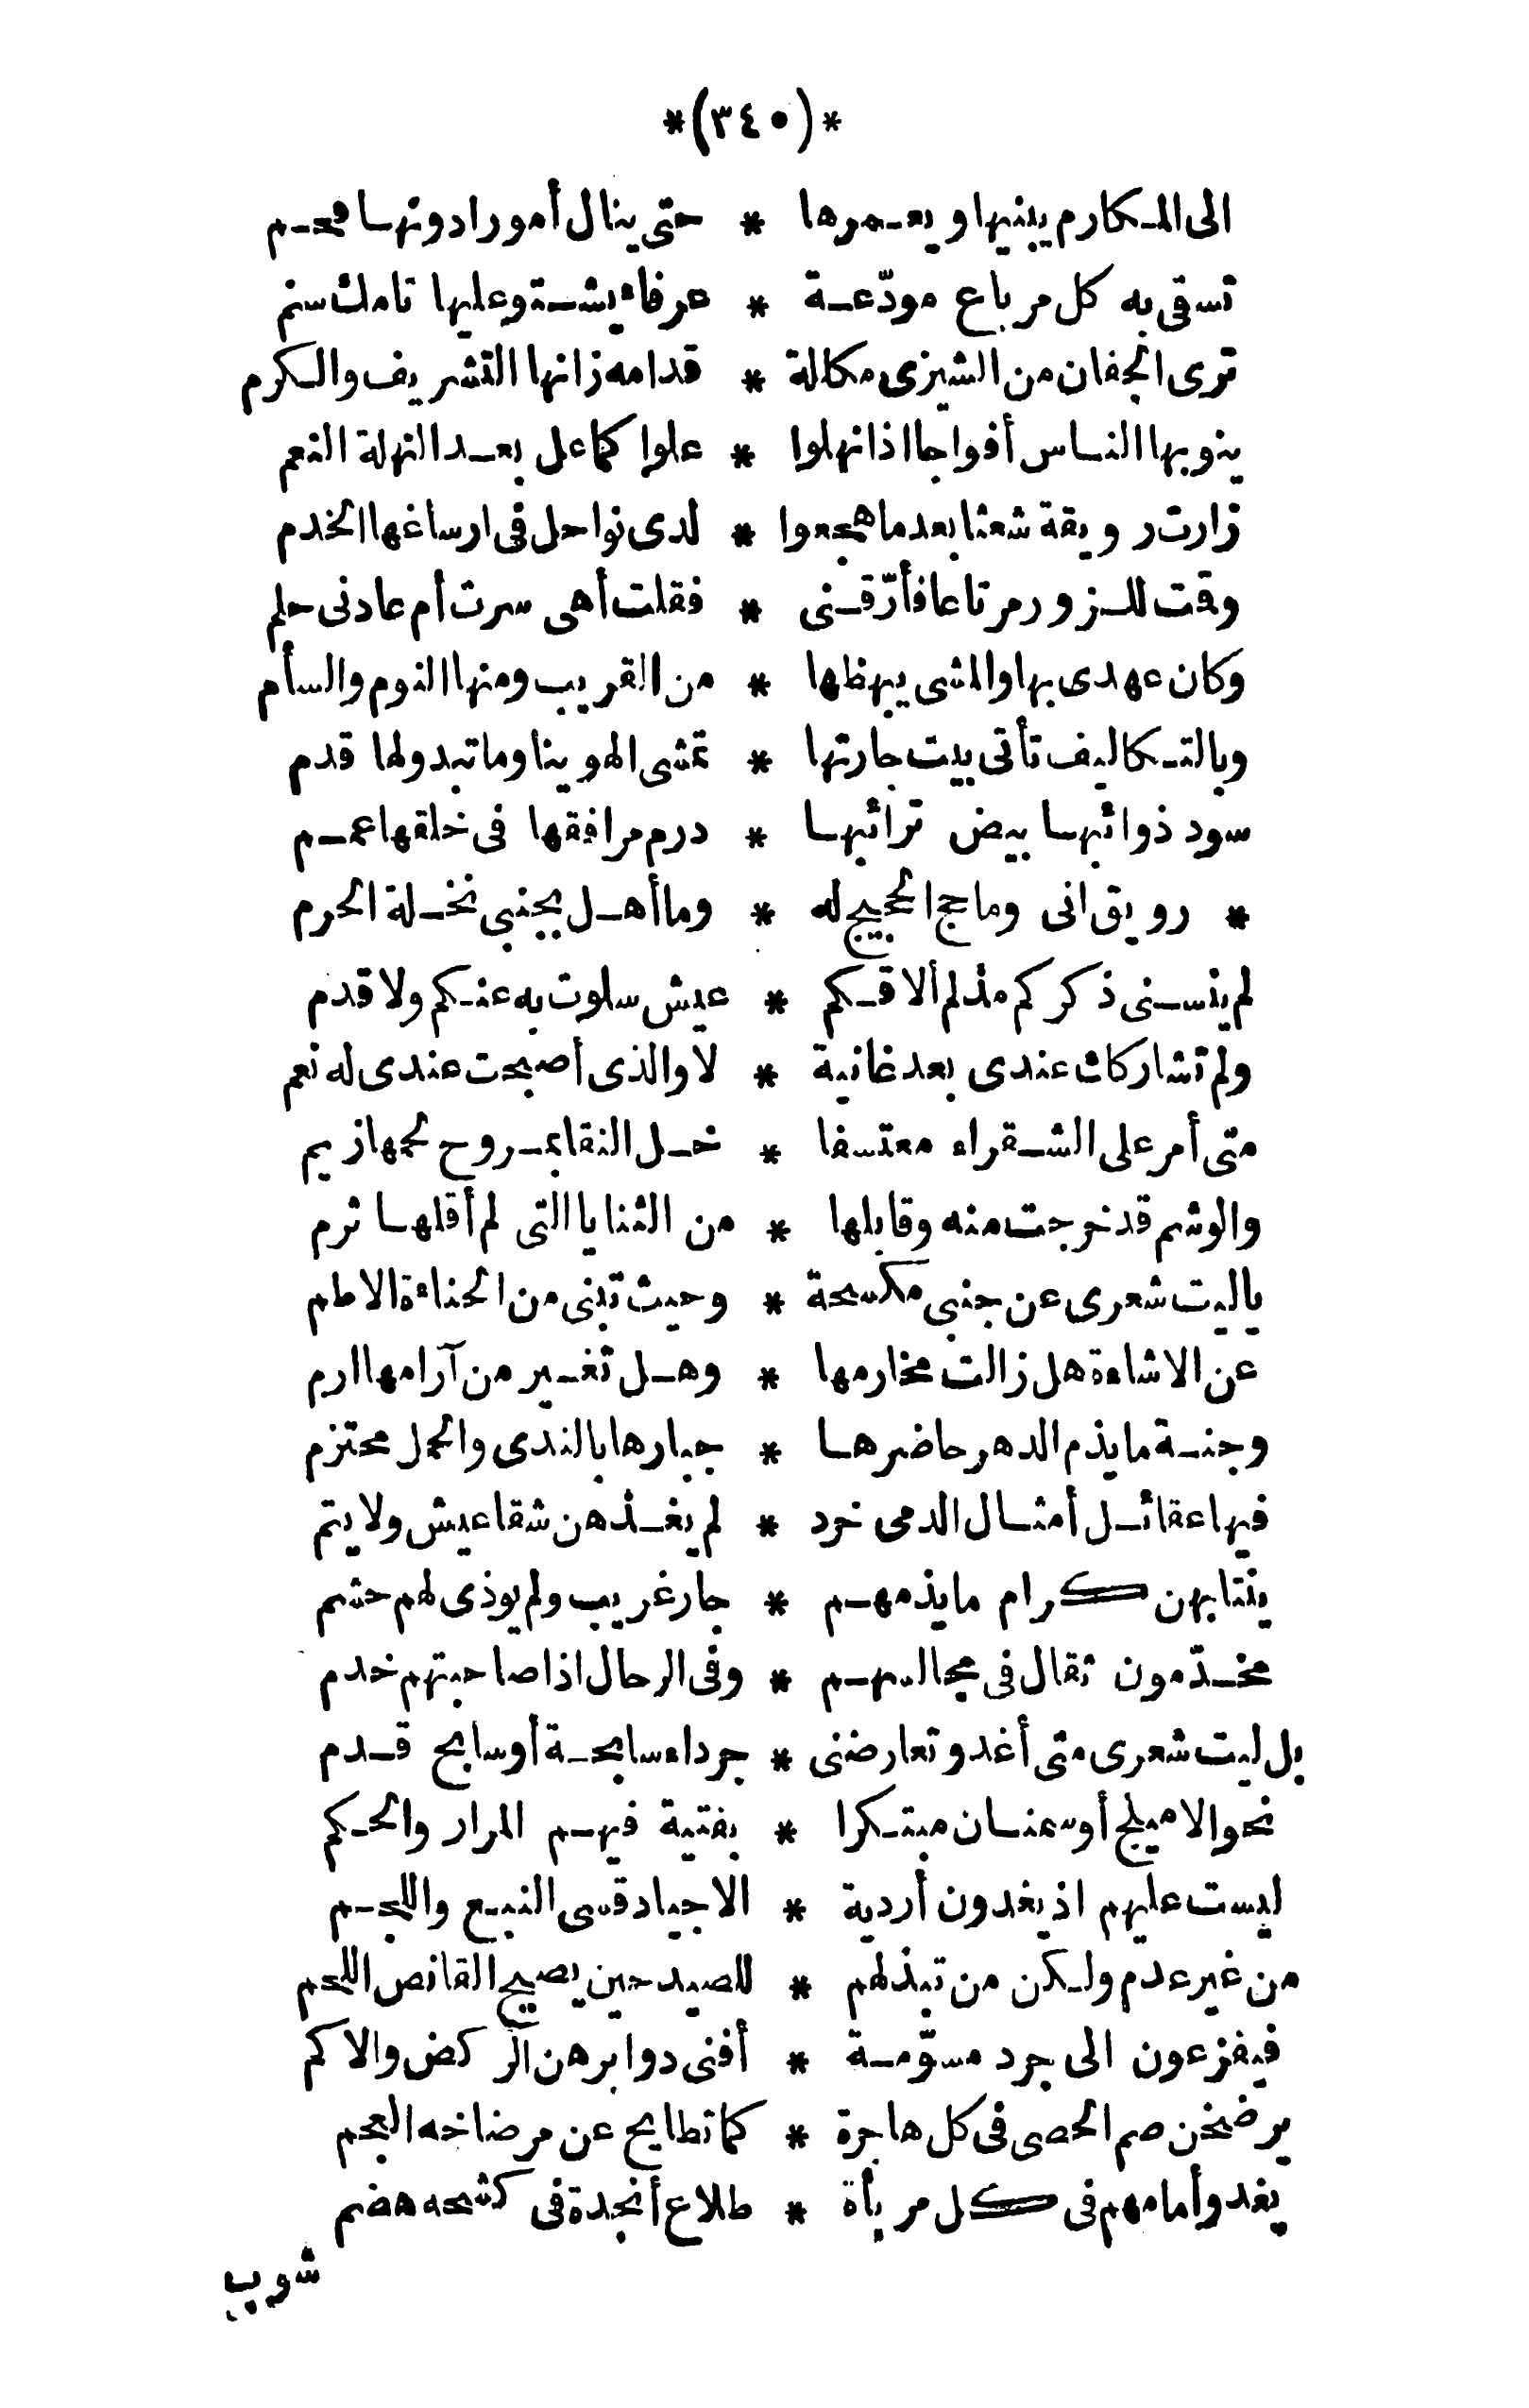 *(٣٤٠)*
الى المكارم يبنيها ويعمرها * حتى ينال أمورا دونها قحم
تسقى به كل مرباع مودّعة * عرفاء يشتو عليها تامك سنم
ترى الجفان من الشيزى مكللة * قدامه زانها التشريف والكرم
ينوبها الناس أفواجا اذا نهلوا * علوا كما عل بعد النهلة النعم
زارت رويقة شعثا بعد ما هجعوا * لدى نواحل فى ارساغها الخدم
وقت للزور مرتاعا فأرّقنى * فقلت أهى سرت أم عادنى حلم
وكان عهدى بها والمشى يبهظها * من القريب ومنها النوم والسأم
وبالتكاليف تأتى بيت جارتها * تمشى الهوينا وما تبدو لها قدم
سود ذوائبها بيض ترائبها * درم مرافقها فى خلقها عمم
* رويق انى وما حج الحجيج له * وما أهل بجنبى نخلة الحرم
لم ينسنى ذكركم مذ لم ألاقكم * عيش سلوت به عنكم ولا قدم
ولم تشاركك عندى بعد غانية * لا والذى أصبحت عندى له نعم
متى أمر على الشقراء معتسفا * خل النقا بمروح لحمها زيم
والوشم قد خرجت منه وقابلها * من الثنايا التى لم أقلها ثرم
ياليت شعرى عن جنبى مكسحة * وحيث تبنى من الحناءة الاطم
عن الاشاءة هل زالت مخارمها * وهل تغير من آرامها ارم
وجنة ما يذم الدهر حاضرها * جبارها بالندى والحمل محتزم
فيها عقائل أمثال الدمى خرد * لم يغذهن شقا عيش ولا يتم
ينتابهن كرام ما يذمهم * جار غريب ولم يوذى لهم حشم
مخدّمون ثقال فى مجالسهم * وفى الرحال اذا صاحبتهم خدم
بل ليت شعرى متى أغدو تعارضنى * جرداء سابحة أو سابح قدم
نحو الاميلح أو سمنان مبتكرا * بفتية فيهم المرار والحكم
ليست عليهم اذ يغدون أردية * الا جياد قسى النبع واللجم
من غير عدم ولكن من تبذلهم * للصيد حين يصيح القانص اللحم
فيفزعون الى جرد مسوّمة * أفنى دوابرهن الركض والاكم
يرضخن صم الحصى فى كل هاجرة * كما تطايح عن مرضاخه العجم
يغدو أمامهم فى كل مربأة * طلاع أنجدة فى كشحه هضم
شوب